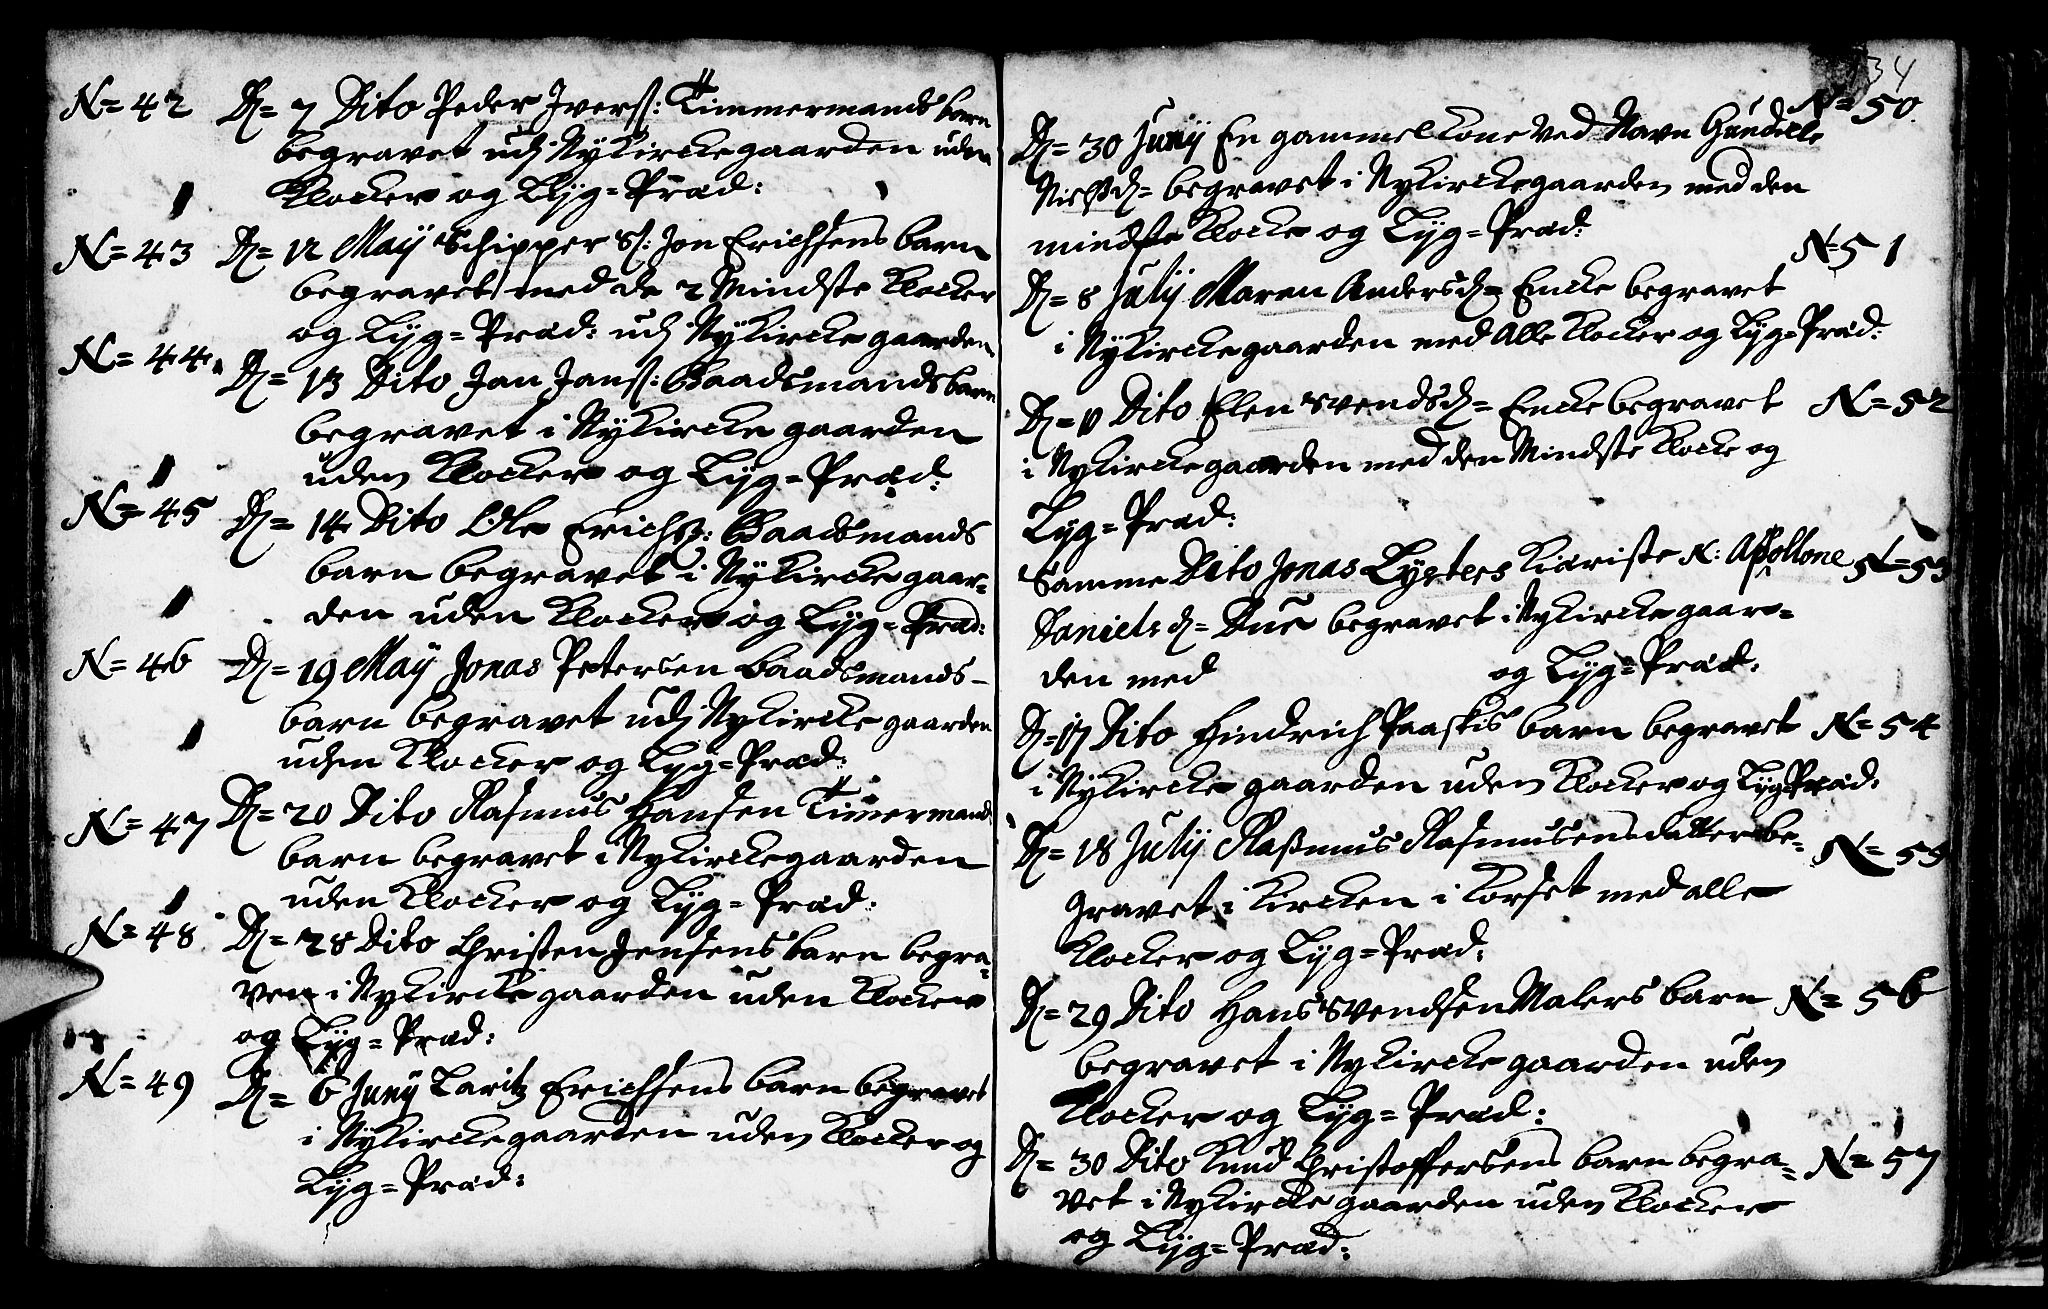 N=42 D= 7 Dito Peder Iverss: Timmermands barn
begravet udj Nykirckegaarden uden
Klocker og Lyg=Præd:
N=43 D= 12 Maÿ Schipper Sl: Jon Erichsens barn
begravet med de 2 Mindste Klocker
og Lÿg=Præd: udj Nÿkirckegaarden
N=44. D= 13 Dito Jan Janss: Baadsmands barn
begravet i Nÿkircke gaarden
uden Klocker og Lÿg=Præd:
N=45 D= 14 Dito Ole Erichss: Baadsmands
barn begravet i Nÿkirckegaar=
den uden Klocker og Lÿg=Præd:
N=46 D= 19 Maÿ Jonas Petersen Baadsmands
barn begravet udj Nykircke gaarden
uden Klocker og Lyg=Præd:
N=47 D= 20 Dito Rasmus Hansen Timermands
barn begravet i Nykirckegaarden
uden Klocker og Lÿg=Præd:
N=48 D= 28 Dito Christen Jensens barn begra=
ven i Nykircke gaarden uden Klocker
og Lÿg=Præd:
N=49 D= 6 Junÿ Laritz Erichsens barn begravet
i Nÿkirckegaarden uden Klocker og
Lÿg=Præd:
34
N=50.
D= 30 Junÿ En gammel Kone ved Navn Gundelle
Nielsd= begravet i Nykirckegaarden med den
mindste Klocke og Lÿg=Præd:
N=51
D= 8 Julÿ Maren Andersd= Encke begravet
i Nÿkirckegaarden med alle Klocker og Lyg=Præd:
D= 11 Dito Elen Svendsd= Encke begravet N=52
i Nykirckegaarden med den Mindste Klocke og
Lyg=Præd:
Samme Dito Jonas Lysters Kiæriste N: Apollone N=53
Daniels d= Due begravet i Nykircke gaar=
den med og Lÿg=Præd:
D= 17 Dito Hindrich Paaskis barn begravet N=54
i Nykircke gaarden uden Klocker og Lÿg Præd:
D= 18 Julÿ Rasmus Rasmusens datter be= N=55
gravet i Kircken i Korset med alle
Klocker og Lÿg=Præd:
D= 29 Dito Hans Svendsen Malers barn N=56
begravet i Nykircke gaarden uden
Klocker og Lÿg=Præd:
D= 30 Dito Knud Christoffersens barn begra= N=57
vet i Nykircke gaarden uden Klocker
og Lÿg=Præd: